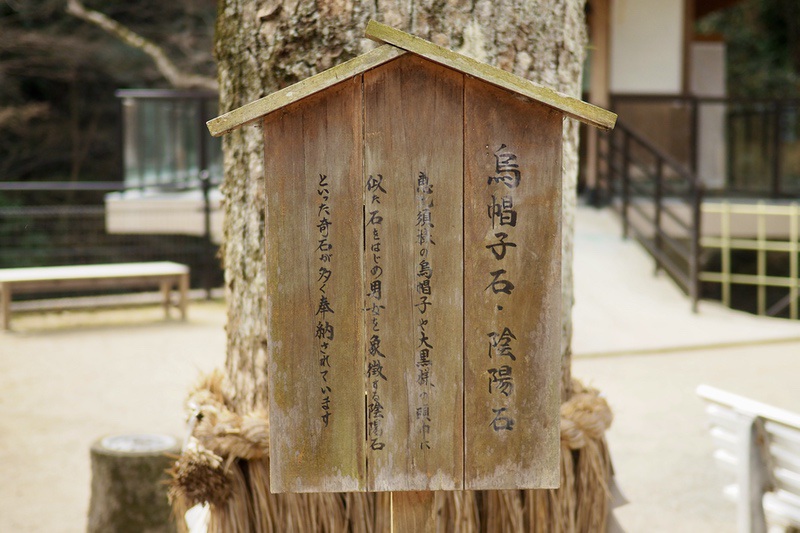 烏帽子石・陰陽石
恵比須様の烏帽子や大黒様の頭巾に
似た石をはじめ男女を象徴する陰陽石
といった奇石が多く奉納されています